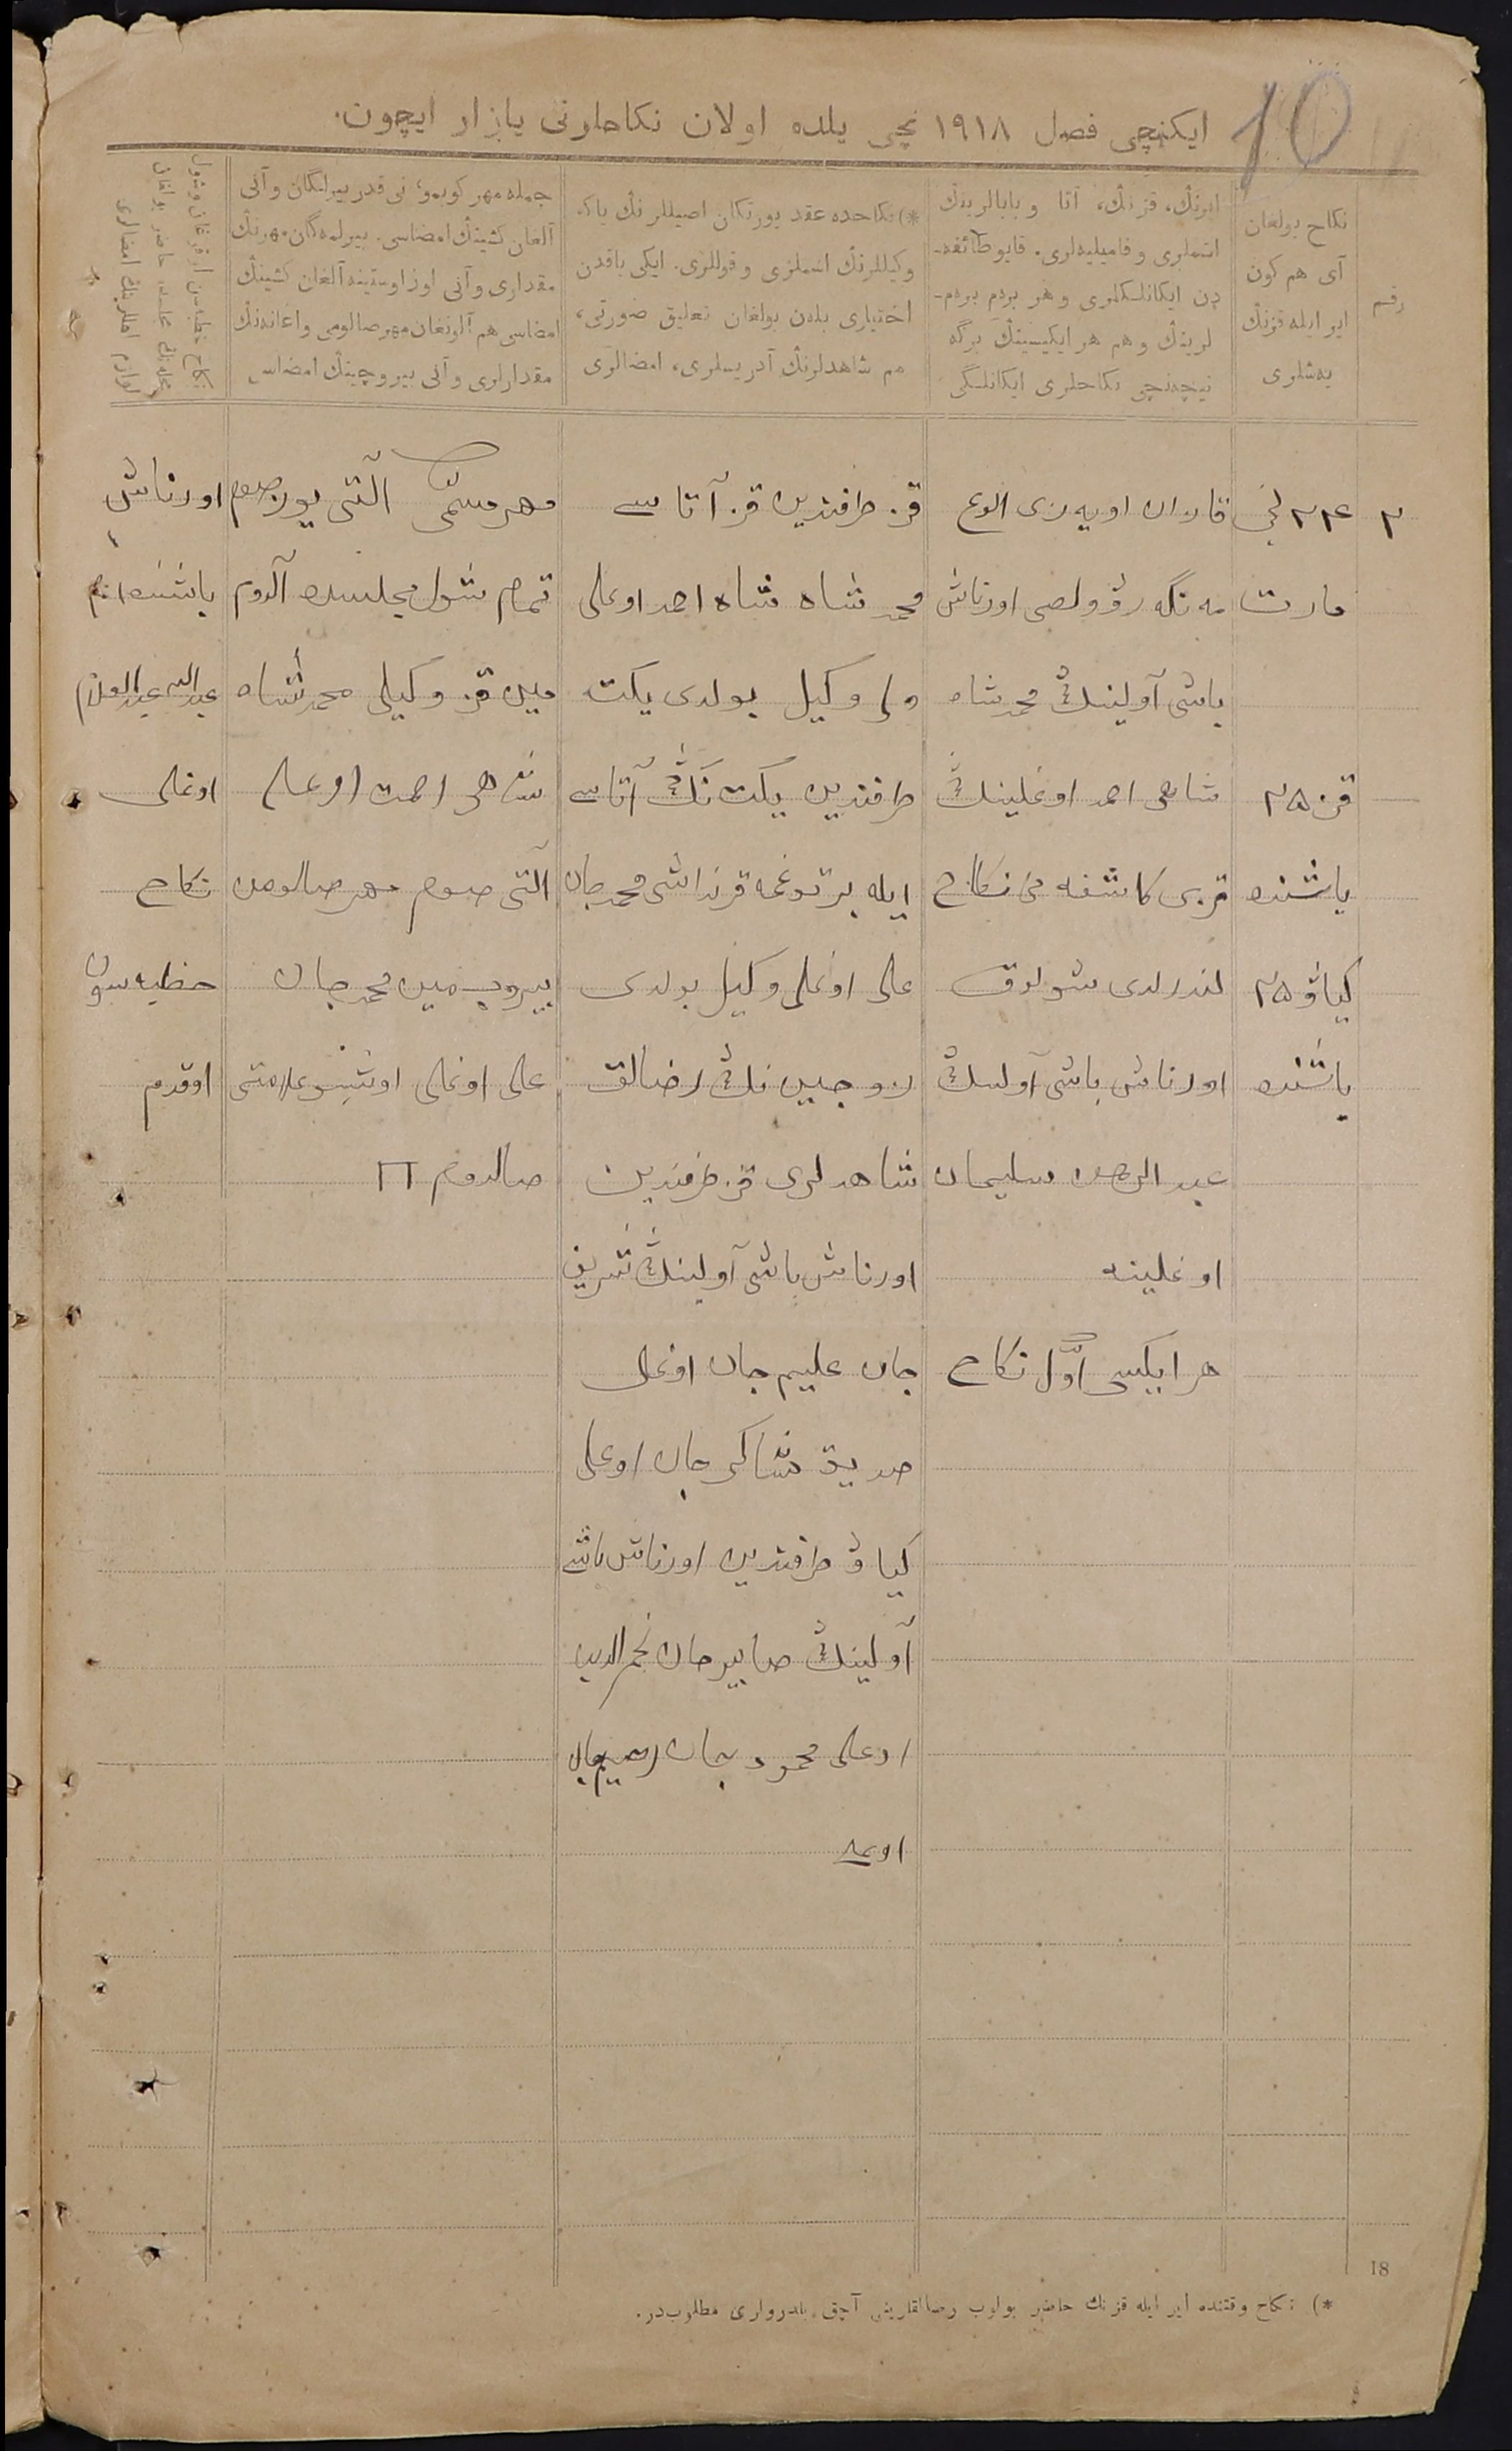 10
ایکنچی فصل ١٩١٨ نچی یلده اولان نکاحلرنی یازار ایچون.
رقم
نکاح بولغان
آی هم کون
ایر ایله قزنڭ
یه‌شلری
ایرنڭ، قزنڭ، آتا و بابالرینڭ
اسملری و فامیلیه‌لری. قایو طائفه‌ـ
دن ایکانلکلری و هر بردم بردم‌ـ
لرینڭ و هم هر ایکیسینڭ برگه
نیچه‌نچی نکاحلری ایکانلگی
*) نکاحده عقد یورتکان اصیللرنڭ یاکه
وکیللرنڭ اسملری و قوللری. ایکی یاقدن
اختیاری بله‌ن بولغان تعلیق صورتی،
هم شاهدلرنڭ آدریسلری، امضالری
جمله مهر کوبمو، نی قدر بیرلگان و آنی
آلغان کشینڭ امضاسی. بیرلمه‌گان مهرنڭ
مقداری و آنی اوز اوستینه آلغان کشینڭ
امضاسی هم آلونغان مهر صالومی و اعانه‌نڭ
مقدارلری و آنی بیروچینڭ امضاسی
نکاح خطبه‌سن اوقوغان و شول
مجلسده حاضر بولغان
امضالری
٣
٢٤ نچی
مارت
قز ٢٥
یاشنده
کیاو ٢٥
یاشنده
قازان اویه‌زی الوغ
مه‌نگه‌ر وولصی اورناش
باشی آولینڭ محمدشاه
شاهی احمد اوغلینڭ
قزی کاشفه نی نکاح
لندرلدی شولوق
اورناش باشی آولینڭ
عبدالرحمن سلیمان
اوغلینه
هر ایکیسی اوّل نکاح
قز طرفندین قز آتاسی
محمدشاه شاه احمد اوغلی
وکیل بولدی یکت
طرفندین یکت نڭ آتاسی
ایله بر توغمه قرنداشی محمدجان
علی اوغلی وکیل بولدی
زوجین نڭ رضالق
شاهدلری قز طرفندین
اورناش باشی آولینڭ شریف
جان علیم جان اوغلی
صدیق شاکر جان اوغلی
کیاو طرفندین اورناش باشی
آولینڭ صابیرجان نجم الدین
اوغلی محمودجان رحیم جان
اوغلی
مهر مسمّی آلتی یوز صوم
تمام شول مجلسده آلدوم
مین قز وکیلی محمدشاه
شاهی احمد اوغلی
آلتی صوم مهر صالومن
بیروب مین محمد جان
علی اوغلی اوشبو علامتی
صالدوم
اورناش
باشنده امام
عبدالله عبدالعلام
اوغلی
نکاح
خطبه سون
اوقدم
18
*) نکاح وقتنده ایر ایله قزنڭ حاضر بولوب رضالقلرینی آچق بلدرولری مطلوب‌در.